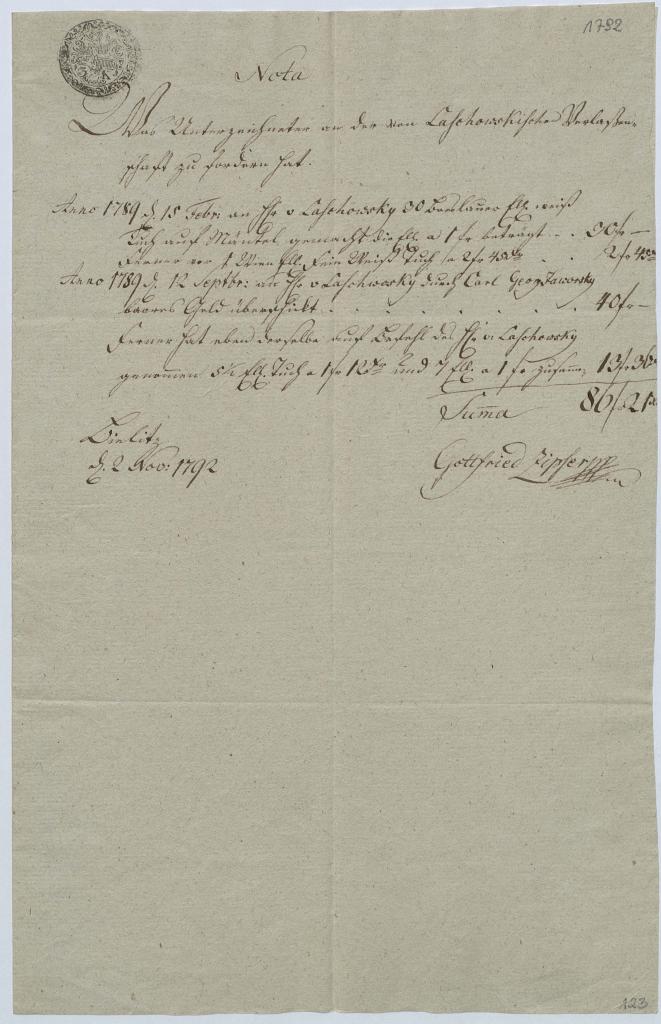 1792
Nota
Was Unterzeichneter an der von Laschowskische Verlaßen-
schaft zu fordern hat.
Anno 1789 d. 15 Febr: an Hr v Laschowsky 30 Breslauer Ell. weiß
Tuch auf Mäntel gemacht die Ell. a 1 fr beträgt . . 30 fr —
Ferner vor 1 Wien Ell. fein Weiß Tuch a 2 fr 45 Xr . . 2 fr 45 Xr
Anno 1789 d. 12 Septbr: an Hr v Laschowsky durch Carl Georg Jaworsky
baares Geld überschickt . . . . . . 40 fr —
Ferner hat eben derselbe auf Befehl des Hr v Laschowsky
genommen 5½ Ell. Tuch a 1 fr 12 Xr und 7 Ell. a 1 fr zusamm: 13 fr 36
Summa 86 fr 21
Bielitz
d. 2 Nov: 1792
Gottfried Zipser
123